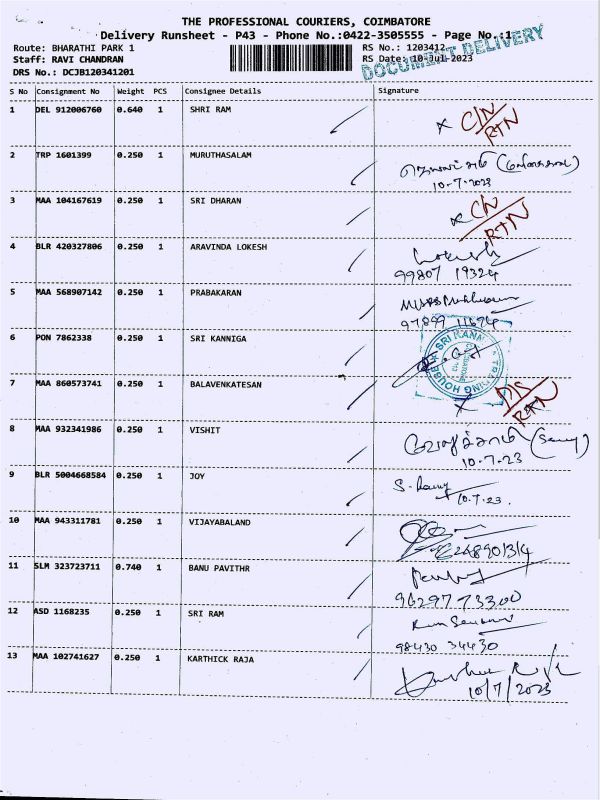 THE PROFESSIONAL COURIERS, COIMBATORE
Delivery Runsheet - P43 - Phone No.:0422-3505555 - Page No.:1
Route: BHARATHI PARK 1
RS No.: 1203412
Staff: RAVI CHANDRAN
RS Date: 10-Jul-2023
DRS No.: DCJB120341201
DOCUMENT DELIVERY
S No Consignment No Weight PCS Consignee Details Signature
1 DEL 912006760 0.640 1 SHRI RAM
x C/N
RTN
2 TRP 1601399 0.250 1 MURUTHASALAM
10-7-2023
3 MAA 104167619 0.250 1 SRI DHARAN
x C/N
RTN
4 BLR 420327806 0.250 1 ARAVINDA LOKESH
Lokesh
99807 19324
5 MAA 568907142 0.250 1 PRABAKARAN
97899 11674
6 PON 7862338 0.250 1 SRI KANNIGA
7 MAA 860573741 0.250 1 BALAVENKATESAN
x D/S
RTN
8 MAA 932341986 0.250 1 VISHIT
10.7.23
9 BLR 5004668584 0.250 1 JOY
10.7.23.
10 MAA 943311781 0.250 1 VIJAYABALAND
11 SLM 323723711 0.740 1 BANU PAVITHR
9629773300
12 ASD 1168235 0.250 1 SRI RAM
98430 34430
13 MAA 102741627 0.250 1 KARTHICK RAJA
10/7/2023